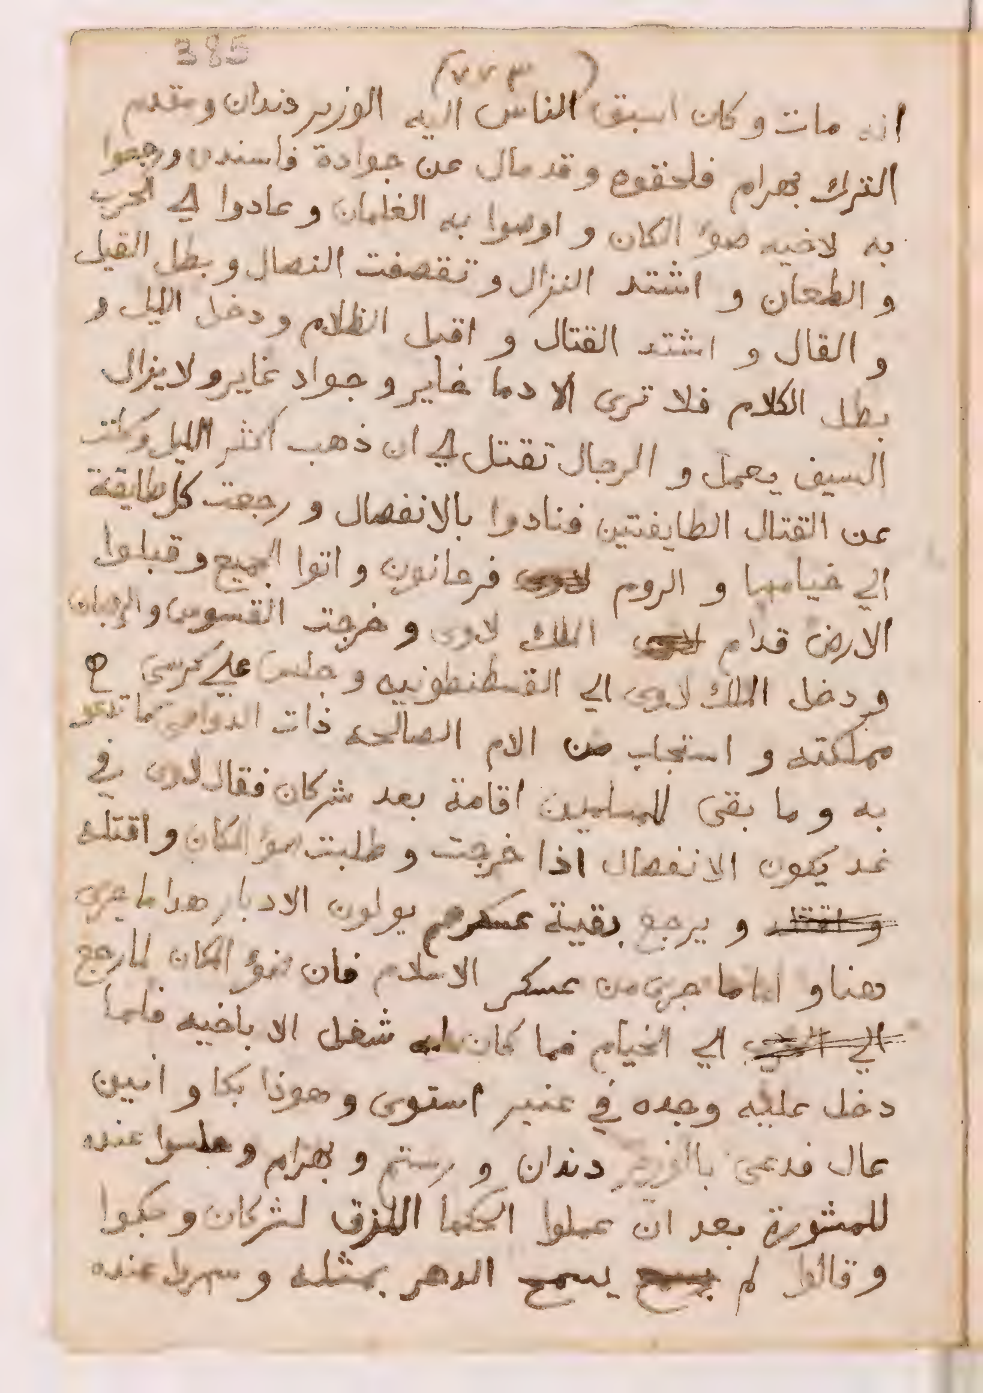 385
(٧٧٣)
انه مات وكان اسبق الناس اليه الوزير دندان ومقدم
الترك بهرام فلحقوه وقد مال عن جوادة فاسندى ورجعوا
به لاخيه ضوؤ المكان و اوصوا به الغلمان و عادوا الي الحرب
و الطعان و اشتد النزال و تقصفت النصال و بطل القيل
و القال و اشتد القتال و اقبل الظلام و دخل الليل و
بطل الكلام فلا ترى الا دما غاير و جواد غاير ولا يزال
السيف يعمل و الرجال تقتل الي ان ذهب اكثر الليل وكلت
عن القتال الطايفتين فنادوا بالانفصال و رجعت كل طايفة
الي خيامها و الروم لاوى فرحانون و اتوا الجميع و قبلوا
الارض قدام لاوى الملك لاوى و خرجت القسوس والرهبان
و دخل الملك لاوى الي القسطنطونيه و جلس علي كرسي
مملكته و استجاب من الام الصالحه ذات الدواهى بما تدعو
به و ما بقى للمسلمين اقامة بعد شركان فقال لاوى في
غد يكون الانفصال اذا خرجت و طلبت ضوؤ المكان و اقتله
واقتله و يرجع بقية عسكرهم يولون الادبار هدا ما جرى
هنا و اما ما جرى من عسكر الاسلام فان ضوؤ المكان لما رجع
الي الي الخيام فما كان له شغل الا باخيه فلما
دخل عليه وجده في غير استوى و هوذا بكا و انين
عال فدعى بالوزير دندان و رستم و بهرام و جلسوا عنده
للمشورة بعد ان عملوا الحكما اللزق لشركان و بكوا
و قالوا لم يسمح يسمح الدهر بمثله و عنده